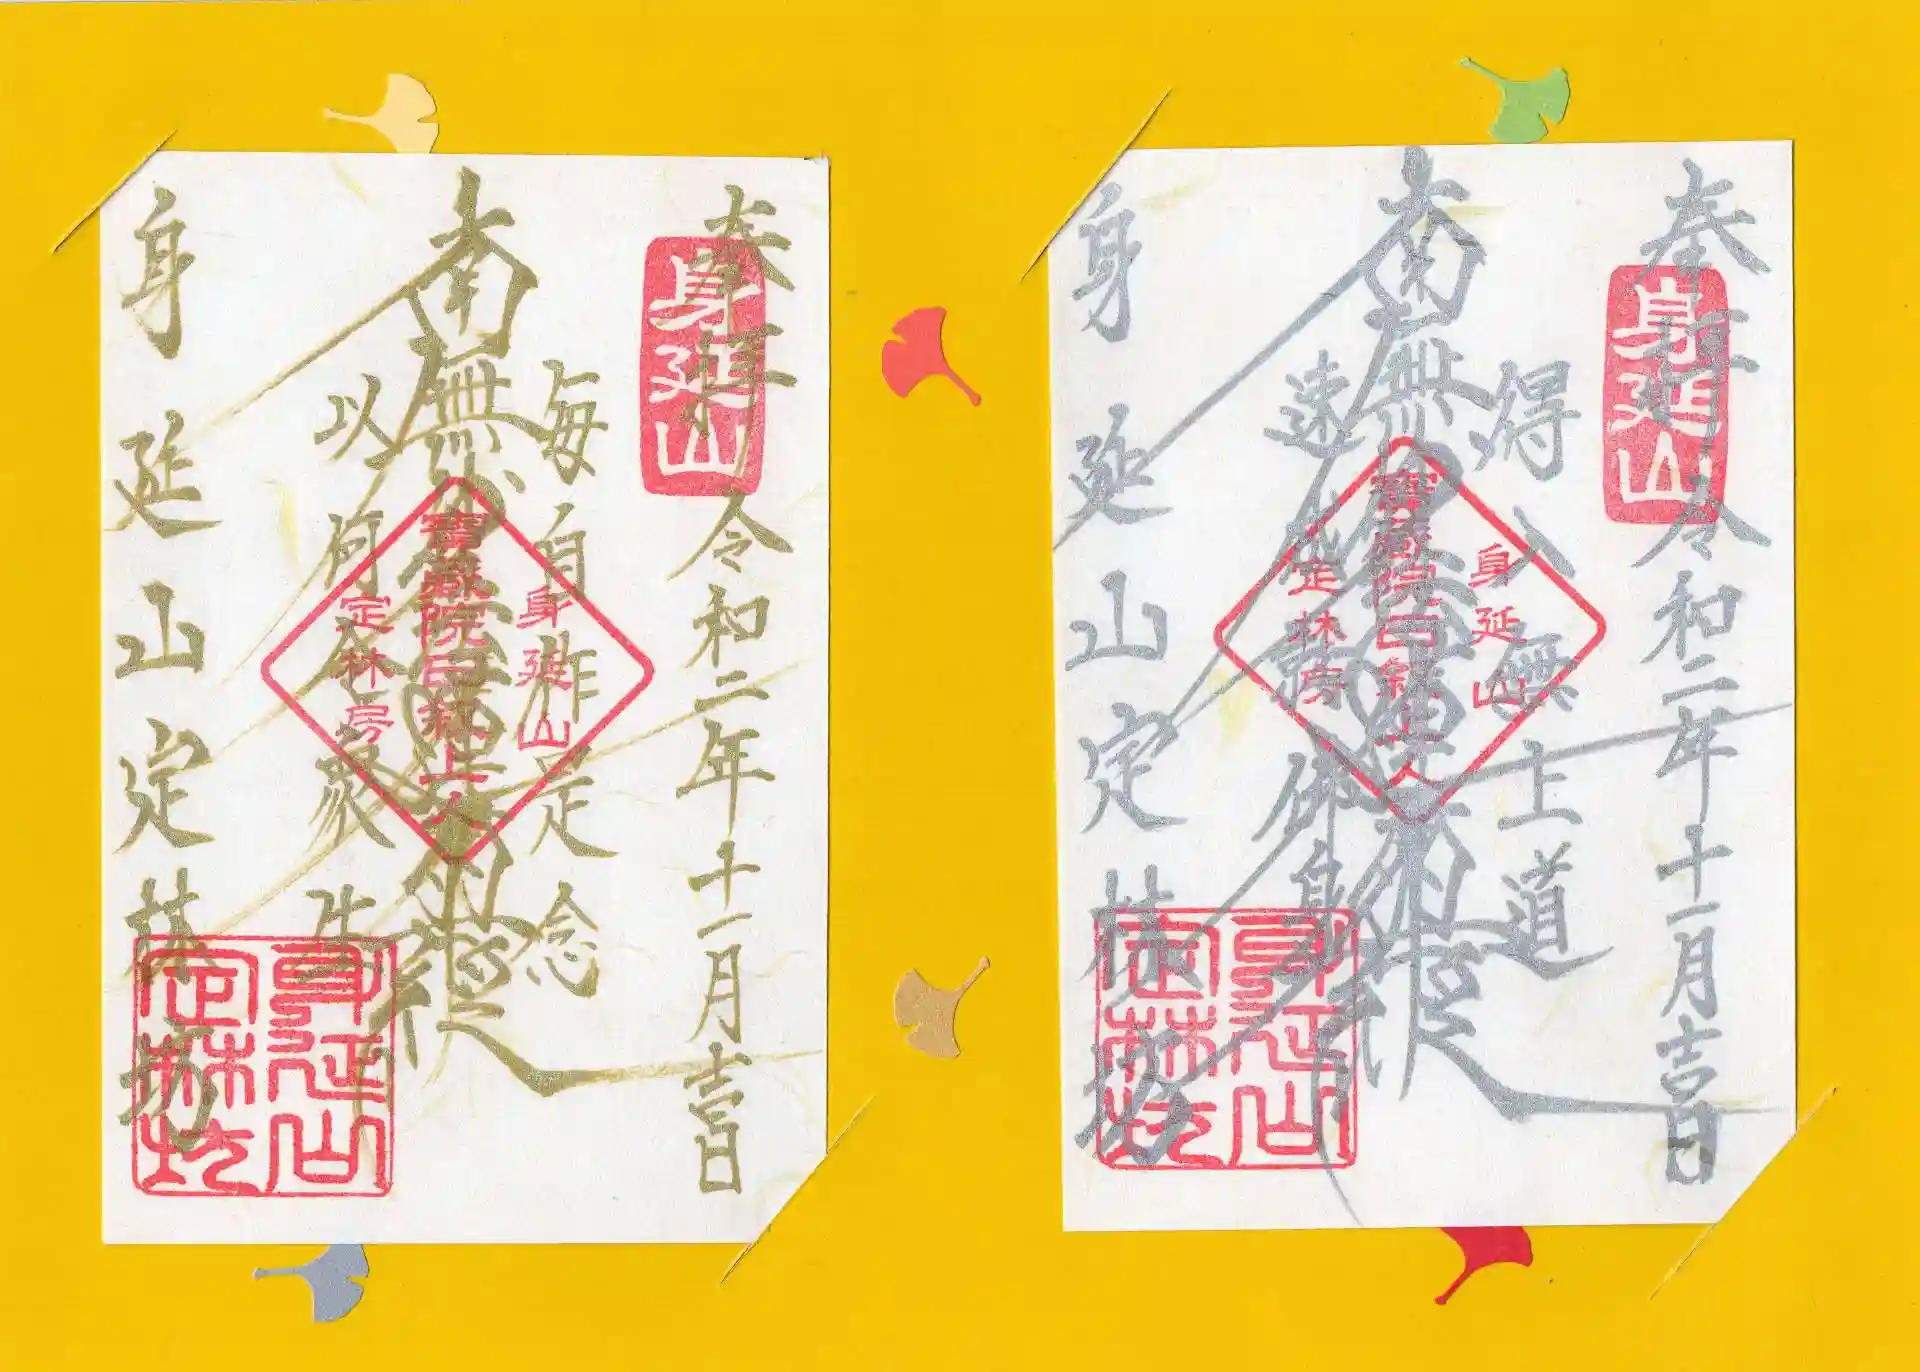 奉拝 令和二年十一月吉日
身延山
毎自作是念
南無妙法蓮華經
以何令衆生
身延山定林坊
身延山
寶蔵院日叙上人
定林房
身延山
定林坊
奉拝 令和二年十一月吉日
身延山
得入無上道
南無妙法蓮華經
速成就佛身
身延山定林坊
身延山
寶蔵院日叙上人
定林房
身延山
定林坊